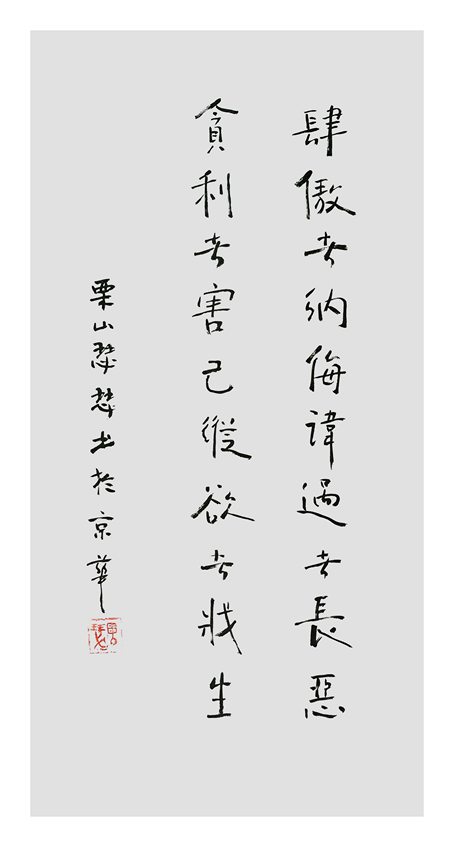 肆傲者納侮諱過者長惡
貪利者害己縱欲者戕生
栗山瑟瑟书於京華